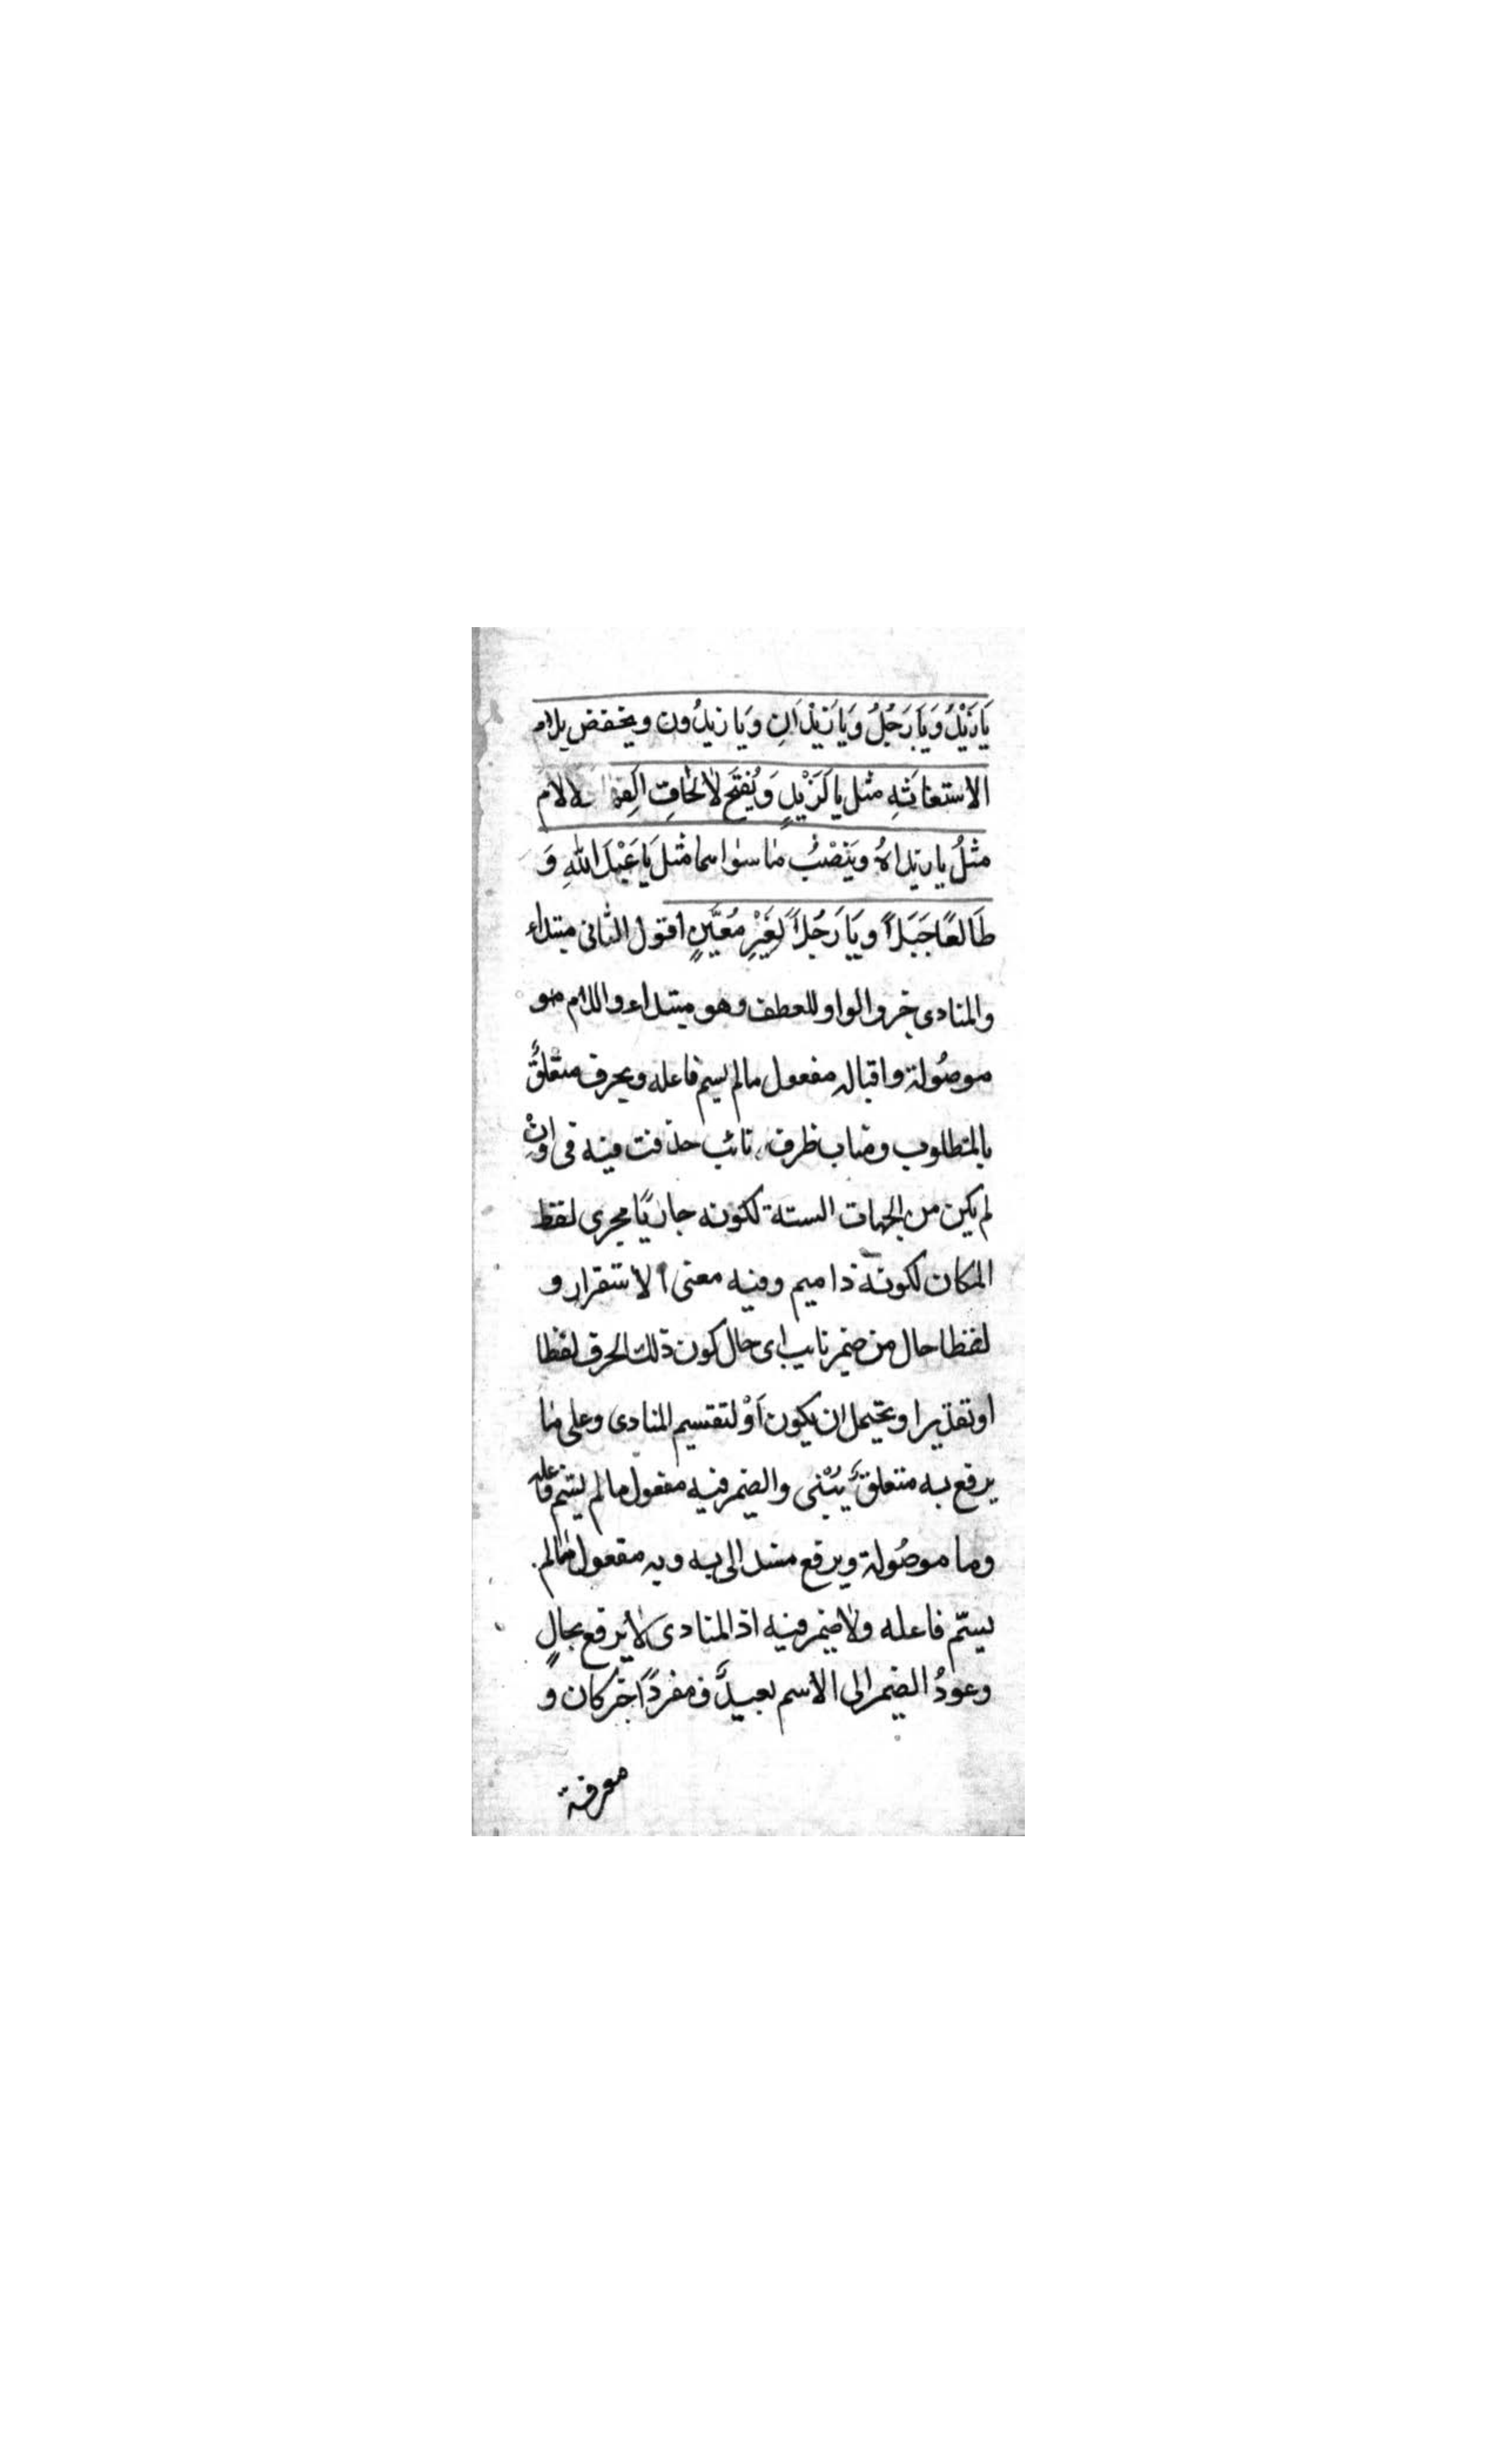 يَا زَيْدُ وَيَا رَجُلُ وَيَا زَيْدَانِ وَيَا زيدُون ويخفض بلام
الاستغاثهِ مثل يا لَزَيْدٍ وَيُفتَح لالحاقِ الِفها ولا لام
مثلُ يا زيداهُ ويَنصْبُ ما سواهما مثل يَا عَبْدَ اللهِ وَ
طَالعًا جَبَلاً وَيَا رَجُلاً لِغَيْرِ مُعَيَّنٍ اقول الثانى مبتداء
والمنادى خبر والواو للعطف وهو مبتداء واللام هو
موصُولة واقباله مفعول مالم يسم فاعله وبحرف متعلقٌ
بالمطلوب ومناب ظرف نائب حذفت فيه فى واِنْ
لم يكن من الجهات الستة لكونه جاريًا مجرى لفظ
المكان لكونه ذا ميم وفيه معنى الاستقرار و
لفظا حال من ضمير نايب اى حال كون ذلك الحرف لفظا
او تقديرا ويحتمل ان يكون اَوْ لتقسيم المنادى وعلى ما
يرفع به متعلقٌ يُبْنى والضمير فيه مفعول مالم يسّم فاعله
وما موصُولة ويرفع مسند الى به وبه مفعول مالم
يسّم فاعله ولا ضمير فيه اذ المنادى لا يُرفع بحالٍ
وعودُ الضمير الى الاسم بعيدٌ ف مفردًا خبر كان و
معرفة